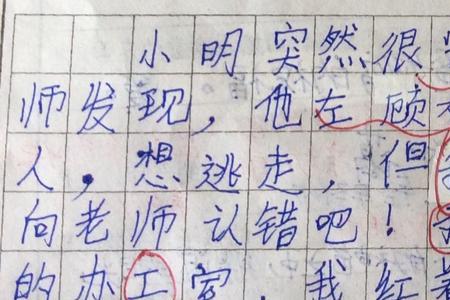 小明突然很
师发现，他左顾
人，想逃走，但
向老师认错吧！
的办工室，我红